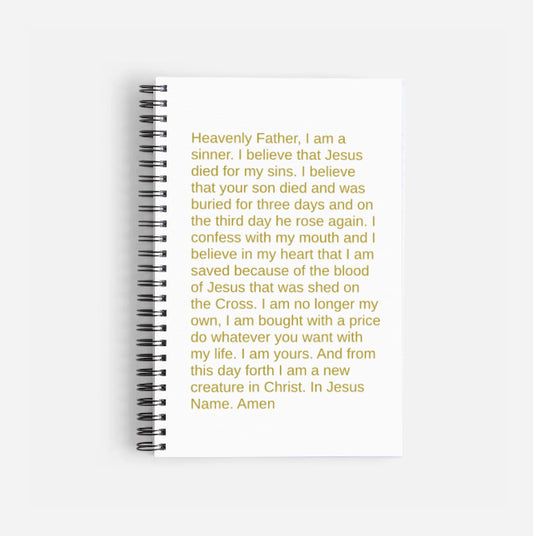 Heavenly Father, I am a
sinner. I believe that Jesus
died for my sins. I believe
that your son died and was
buried for three days and on
the third day he rose again. I
confess with my mouth and I
believe in my heart that I am
saved because of the blood
of Jesus that was shed on
the Cross. I am no longer my
own, I am bought with a price
do whatever you want with
my life. I am yours. And from
this day forth I am a new
creature in Christ. In Jesus
Name. Amen